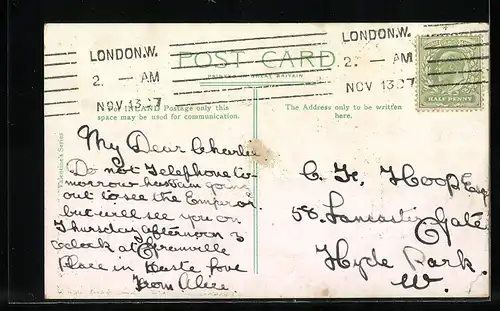 LONDON.W.
2. - AM
NOV 13 07
LONDON.W.
2. - AM
NOV 13 07
POST CARD.
PRINTED IN GREAT BRITAIN
HALF PENNY
For INLAND Postage only this
space may be used for communication.
The Address only to be written
here.
Valentine's Series
My Dear Charlie
Do not Telephone to-
morrow as am going
out to see the Emperor
but will see you on
Thursday afternoon 3
o'clock at Grenville
Place in haste love
from Alice
C. Hoop Esq
58. Lancaster Gate
Hyde Park
W.